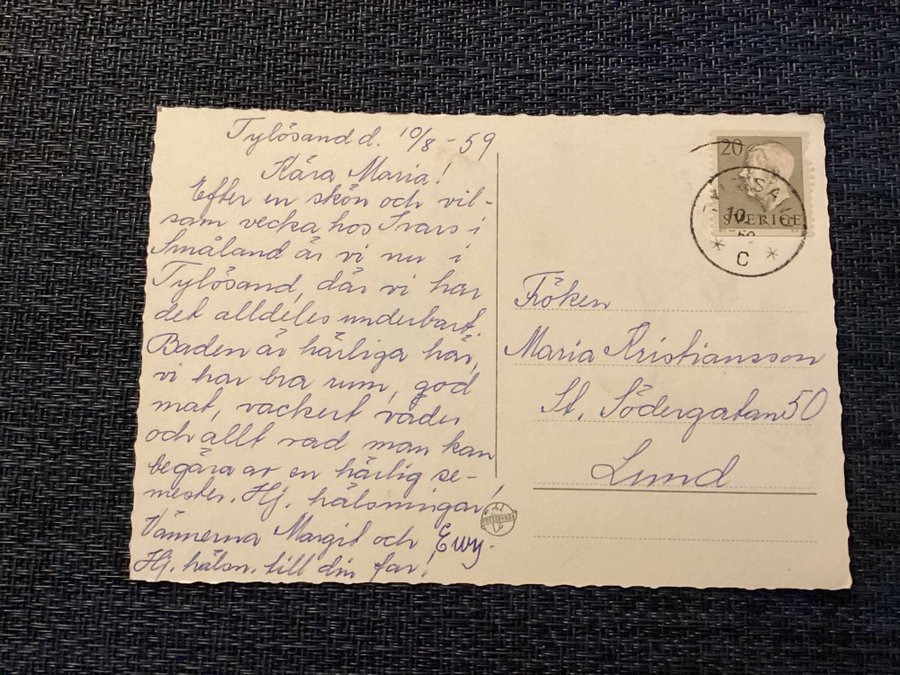 Tylösand d. 10/8 - 59
Kära Maria!
Efter en skön och vil-
sam vecka hos Ivars i
Småland är vi nu i
Tylösand, där vi har
det alldeles underbart.
Baden är härliga här,
vi har bra rum, god
mat, vackert väder
och allt vad man kan
begära av en härlig se-
mester. Hj. hälsningar!
Vännerna Margit och Ewy.
Hj. hälsn. till din far!
20
SVERIGE
10
59
* C *
Fröken
Maria Kristiansson
St. Södergatan 50
Lund